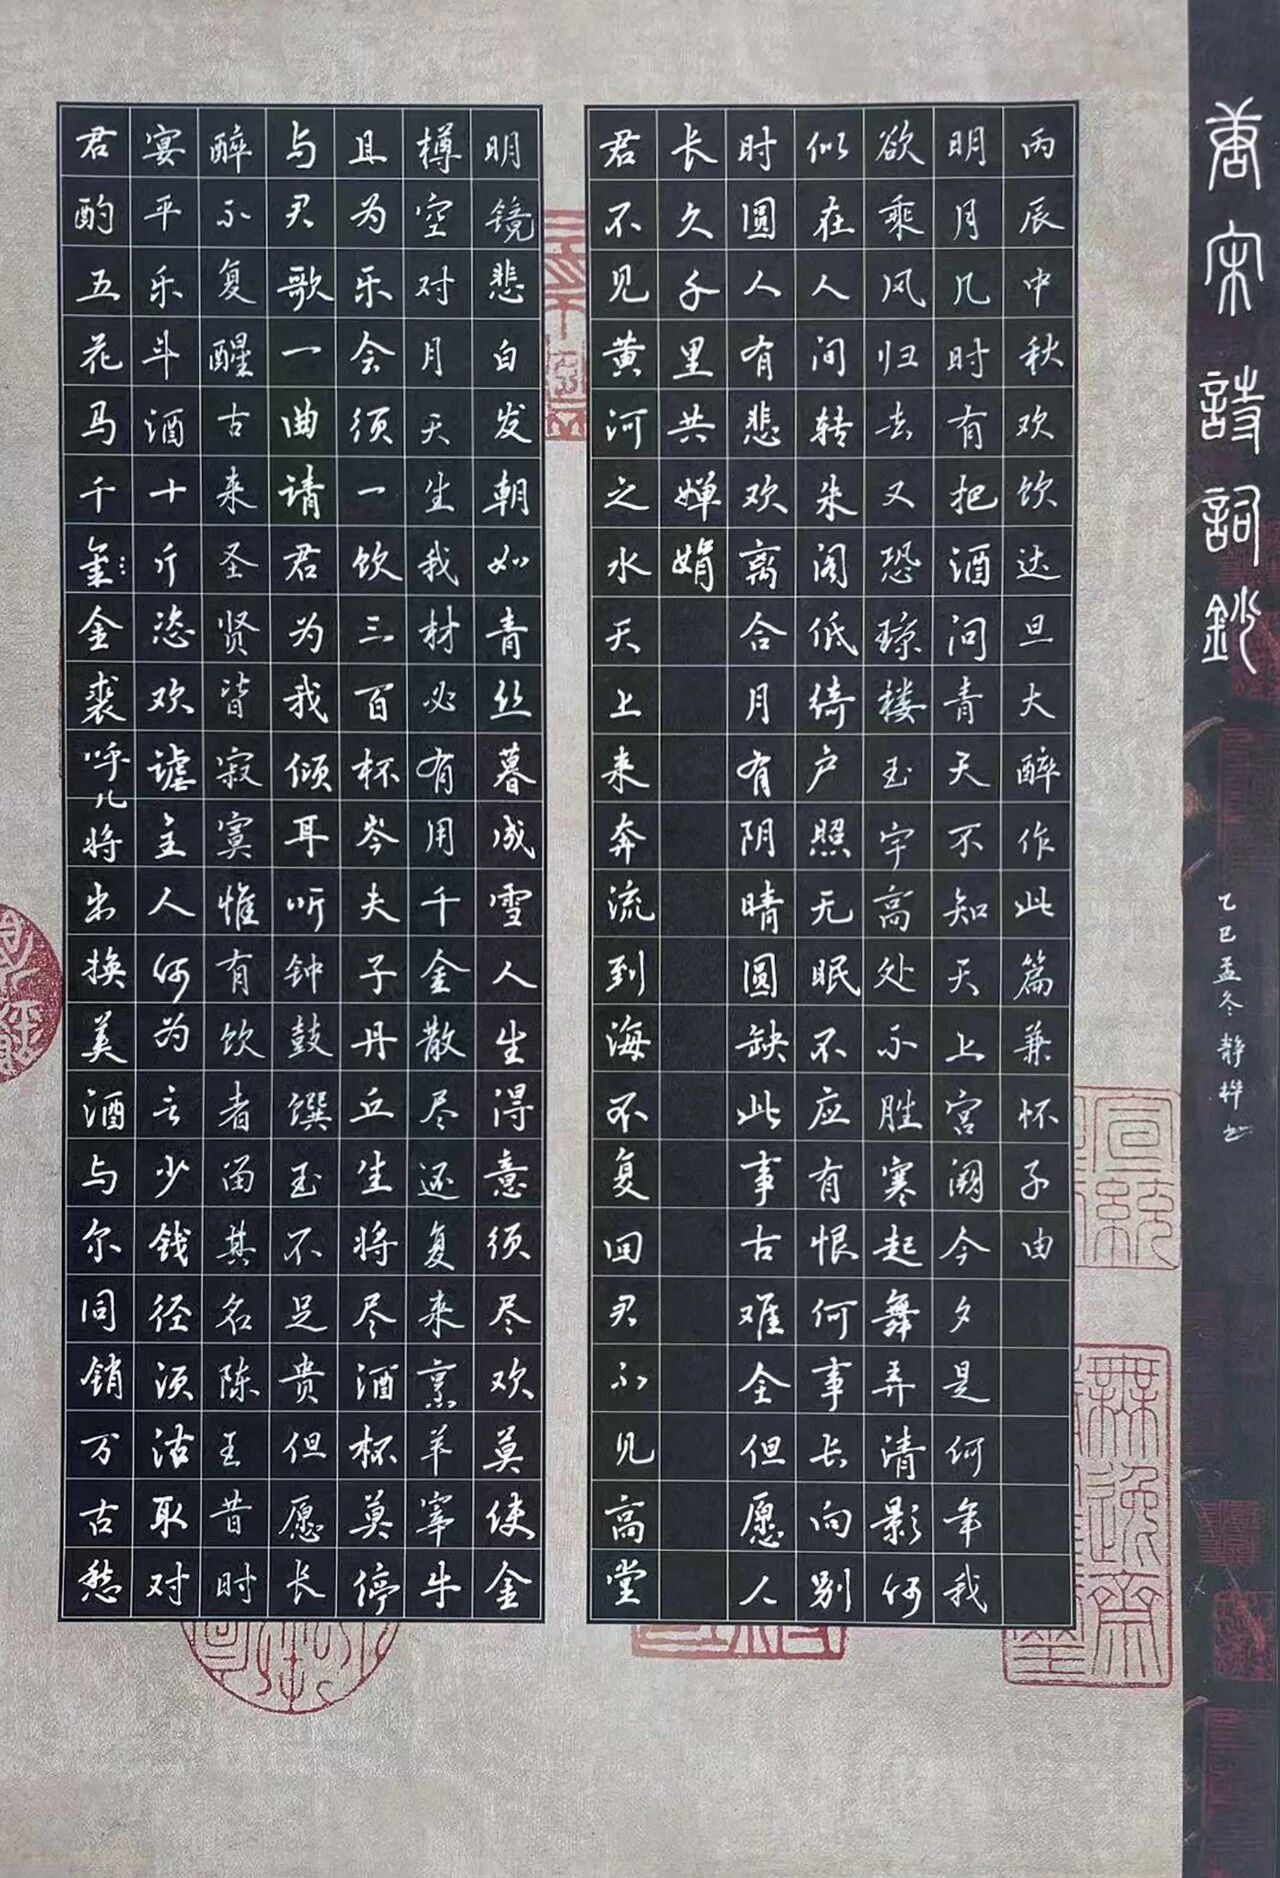 唐宋詩詞鈔
乙巳孟冬静桦书
丙辰中秋欢饮达旦大醉作此篇兼怀子由
明月几时有把酒问青天不知天上宫阙今夕是何年我
欲乘风归去又恐琼楼玉宇高处不胜寒起舞弄清影何
似在人间转朱阁低绮户照无眠不应有恨何事长向别
时圆人有悲欢离合月有阴晴圆缺此事古难全但愿人
长久千里共婵娟
君不见黄河之水天上来奔流到海不复回君不见高堂
明镜悲白发朝如青丝暮成雪人生得意须尽欢莫使金
樽空对月天生我材必有用千金散尽还复来烹羊宰牛
且为乐会须一饮三百杯岑夫子丹丘生将尽酒杯莫停
与君歌一曲请君为我倾耳听钟鼓馔玉不足贵但愿长
醉不复醒古来圣贤皆寂寞惟有饮者留其名陈王昔时
宴平乐斗酒十斤恣欢谑主人何为言少钱径须沽取对
君酌五花马千金裘呼儿将出换美酒与尔同销万古愁